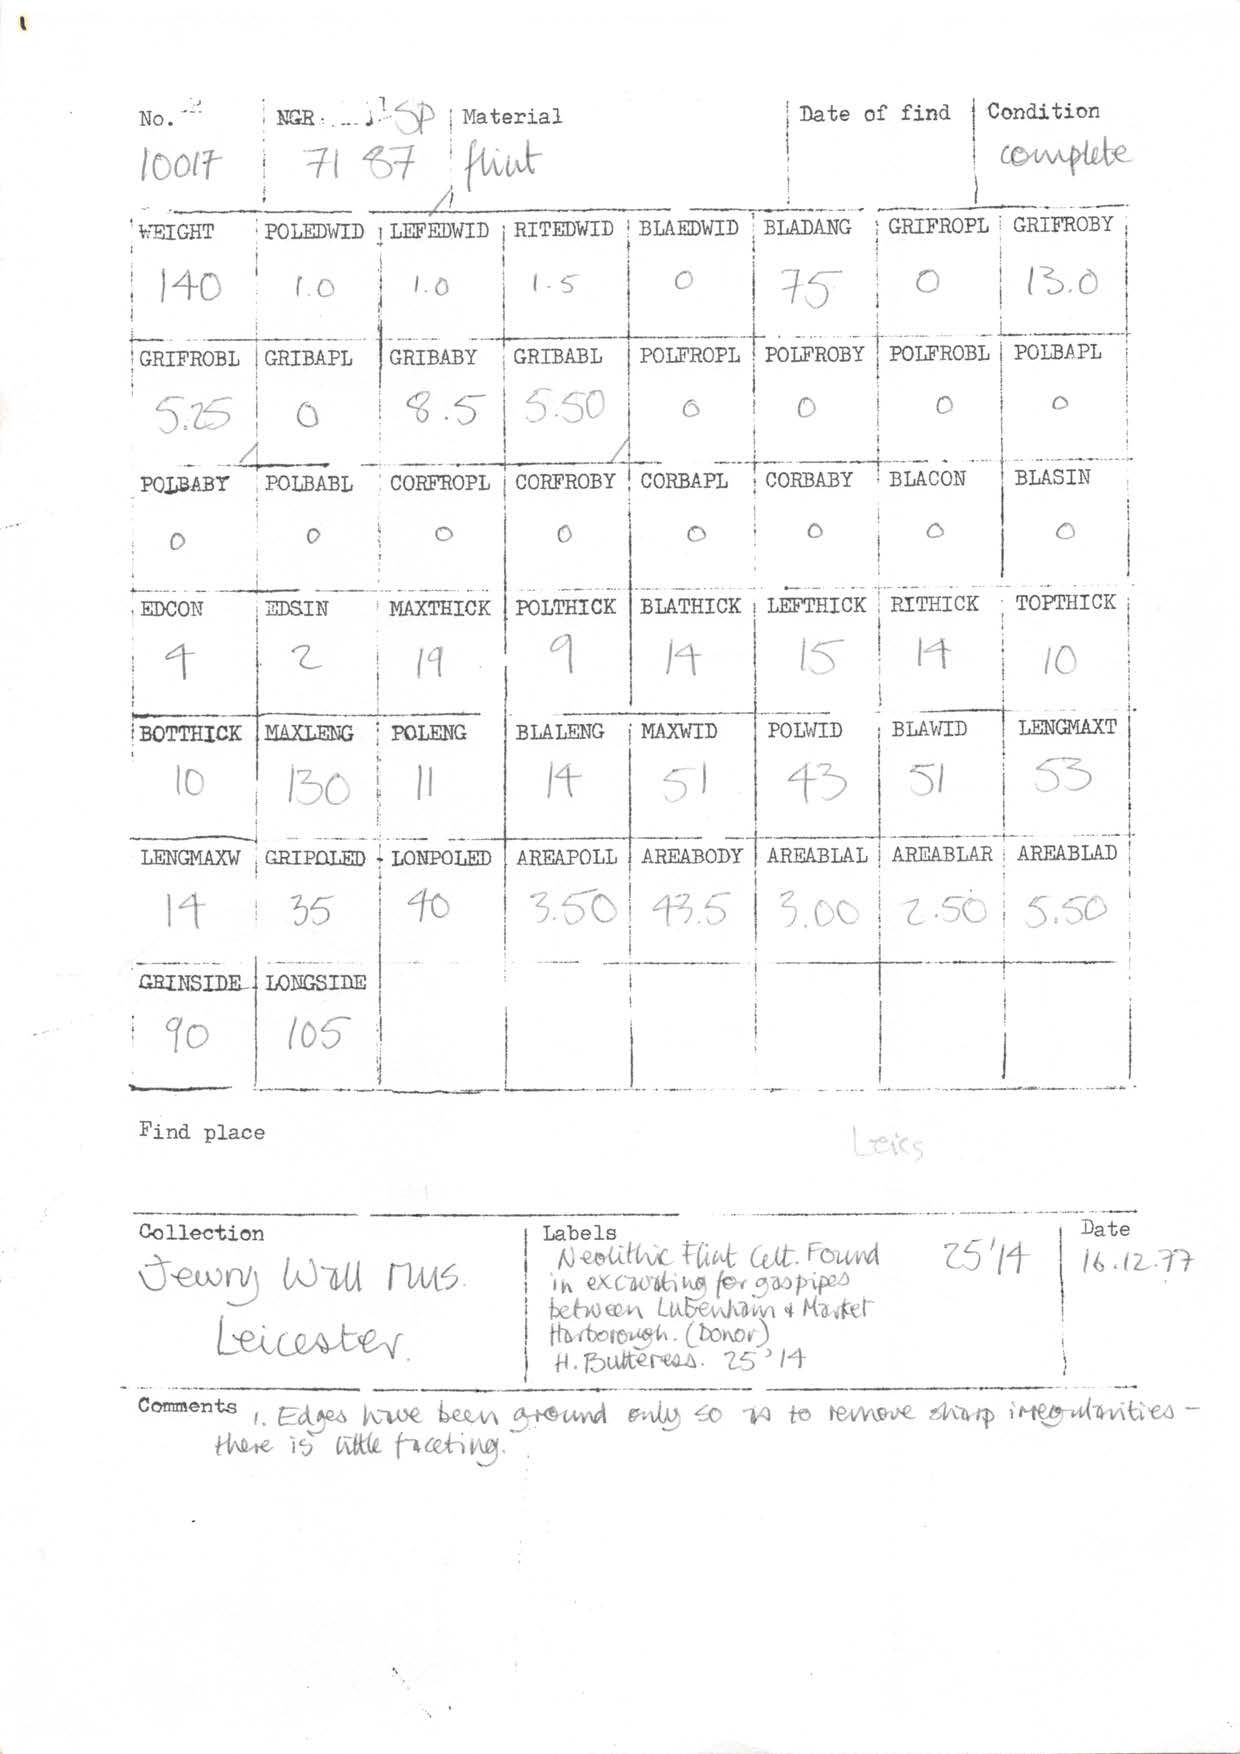 1
No. NGR. SP Material Date of find Condition
10017 71 87 flint complete
WEIGHT POLEDWID LEFEDWID RITEDWID BLAEDWID BLADANG GRIFROPL GRIFROBY
140 1.0 1.0 1.5 0 75 0 13.0
GRIFROBL GRIBAPL GRIBABY GRIBABL POLFROPL POLFROBY POLFROBL POLBAPL
5.25 0 8.5 5.50 0 0 0 0
POLBABY POLBABL CORFROPL CORFROBY CORBAPL CORBABY BLACON BLASIN
0 0 0 0 0 0 0 0
EDCON EDSIN MAXTHICK POLTHICK BLATHICK LEFTHICK RITHICK TOPTHICK
4 2 19 9 14 15 14 10
BOTTHICK MAXLENG POLENG BLALENG MAXWID POLWID BLAWID LENGMAXT
10 130 11 14 51 43 51 53
LENGMAXW GRIPOLED LONPOLED AREAPOLL AREABODY AREABLAL AREABLAR AREABLAD
14 35 40 3.50 43.5 3.00 2.50 5.50
GRINSIDE LONGSIDE
90 105
Find place
Leics
Collection
Jewry Wall Mus.
Leicester.
Labels
Neolithic Flint Celt. Found
in excavating for gaspipes
between Lubenham & Market
Harborough. (Donor)
H. Butteress. 25'14
25'14
Date
16.12.77
Comments 1. Edges have been ground only so as to remove sharp irregularities -
there is little faceting.